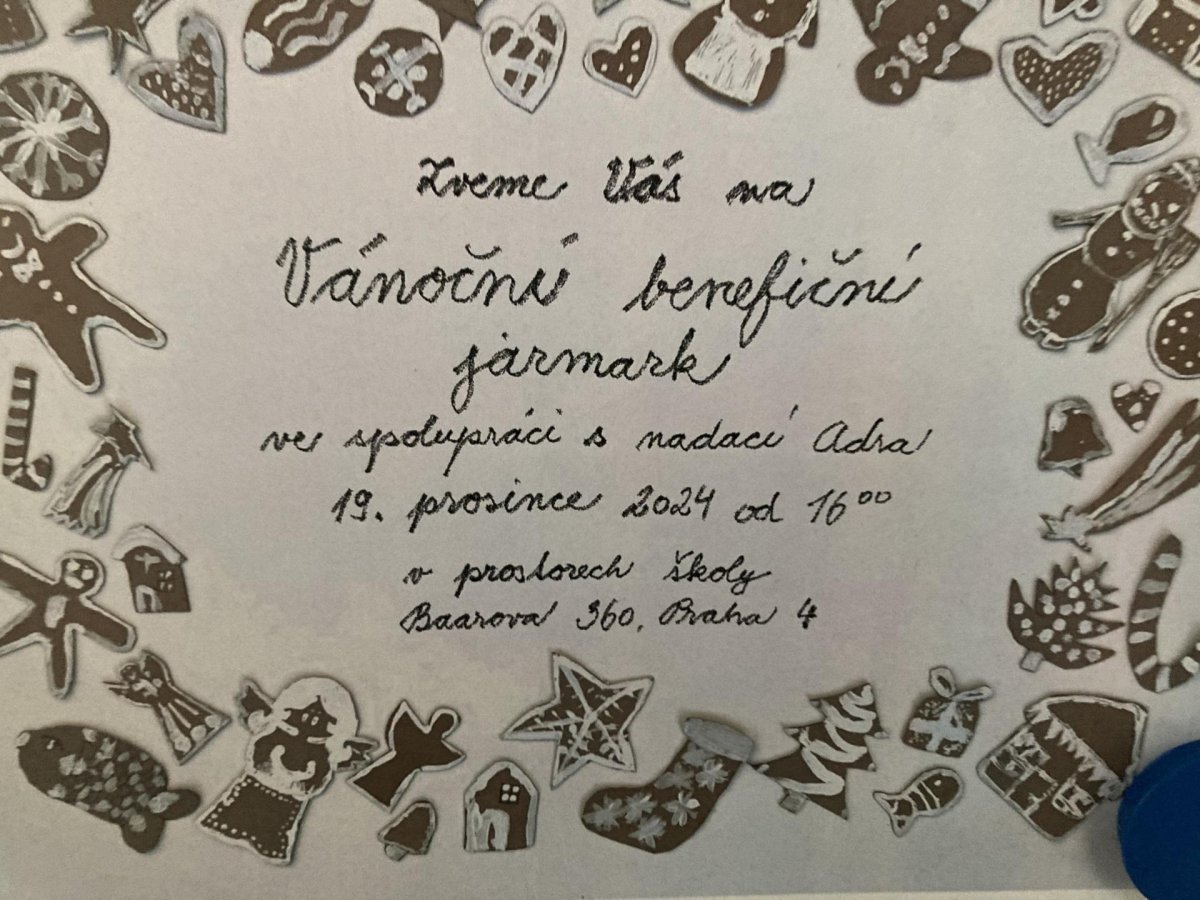 Zveme Vás na
Vánoční benefiční
jarmark
ve spolupráci s nadací Adra
19. prosince 2024 od 16⁰⁰
v prostorech školy
Baarova 360, Praha 4